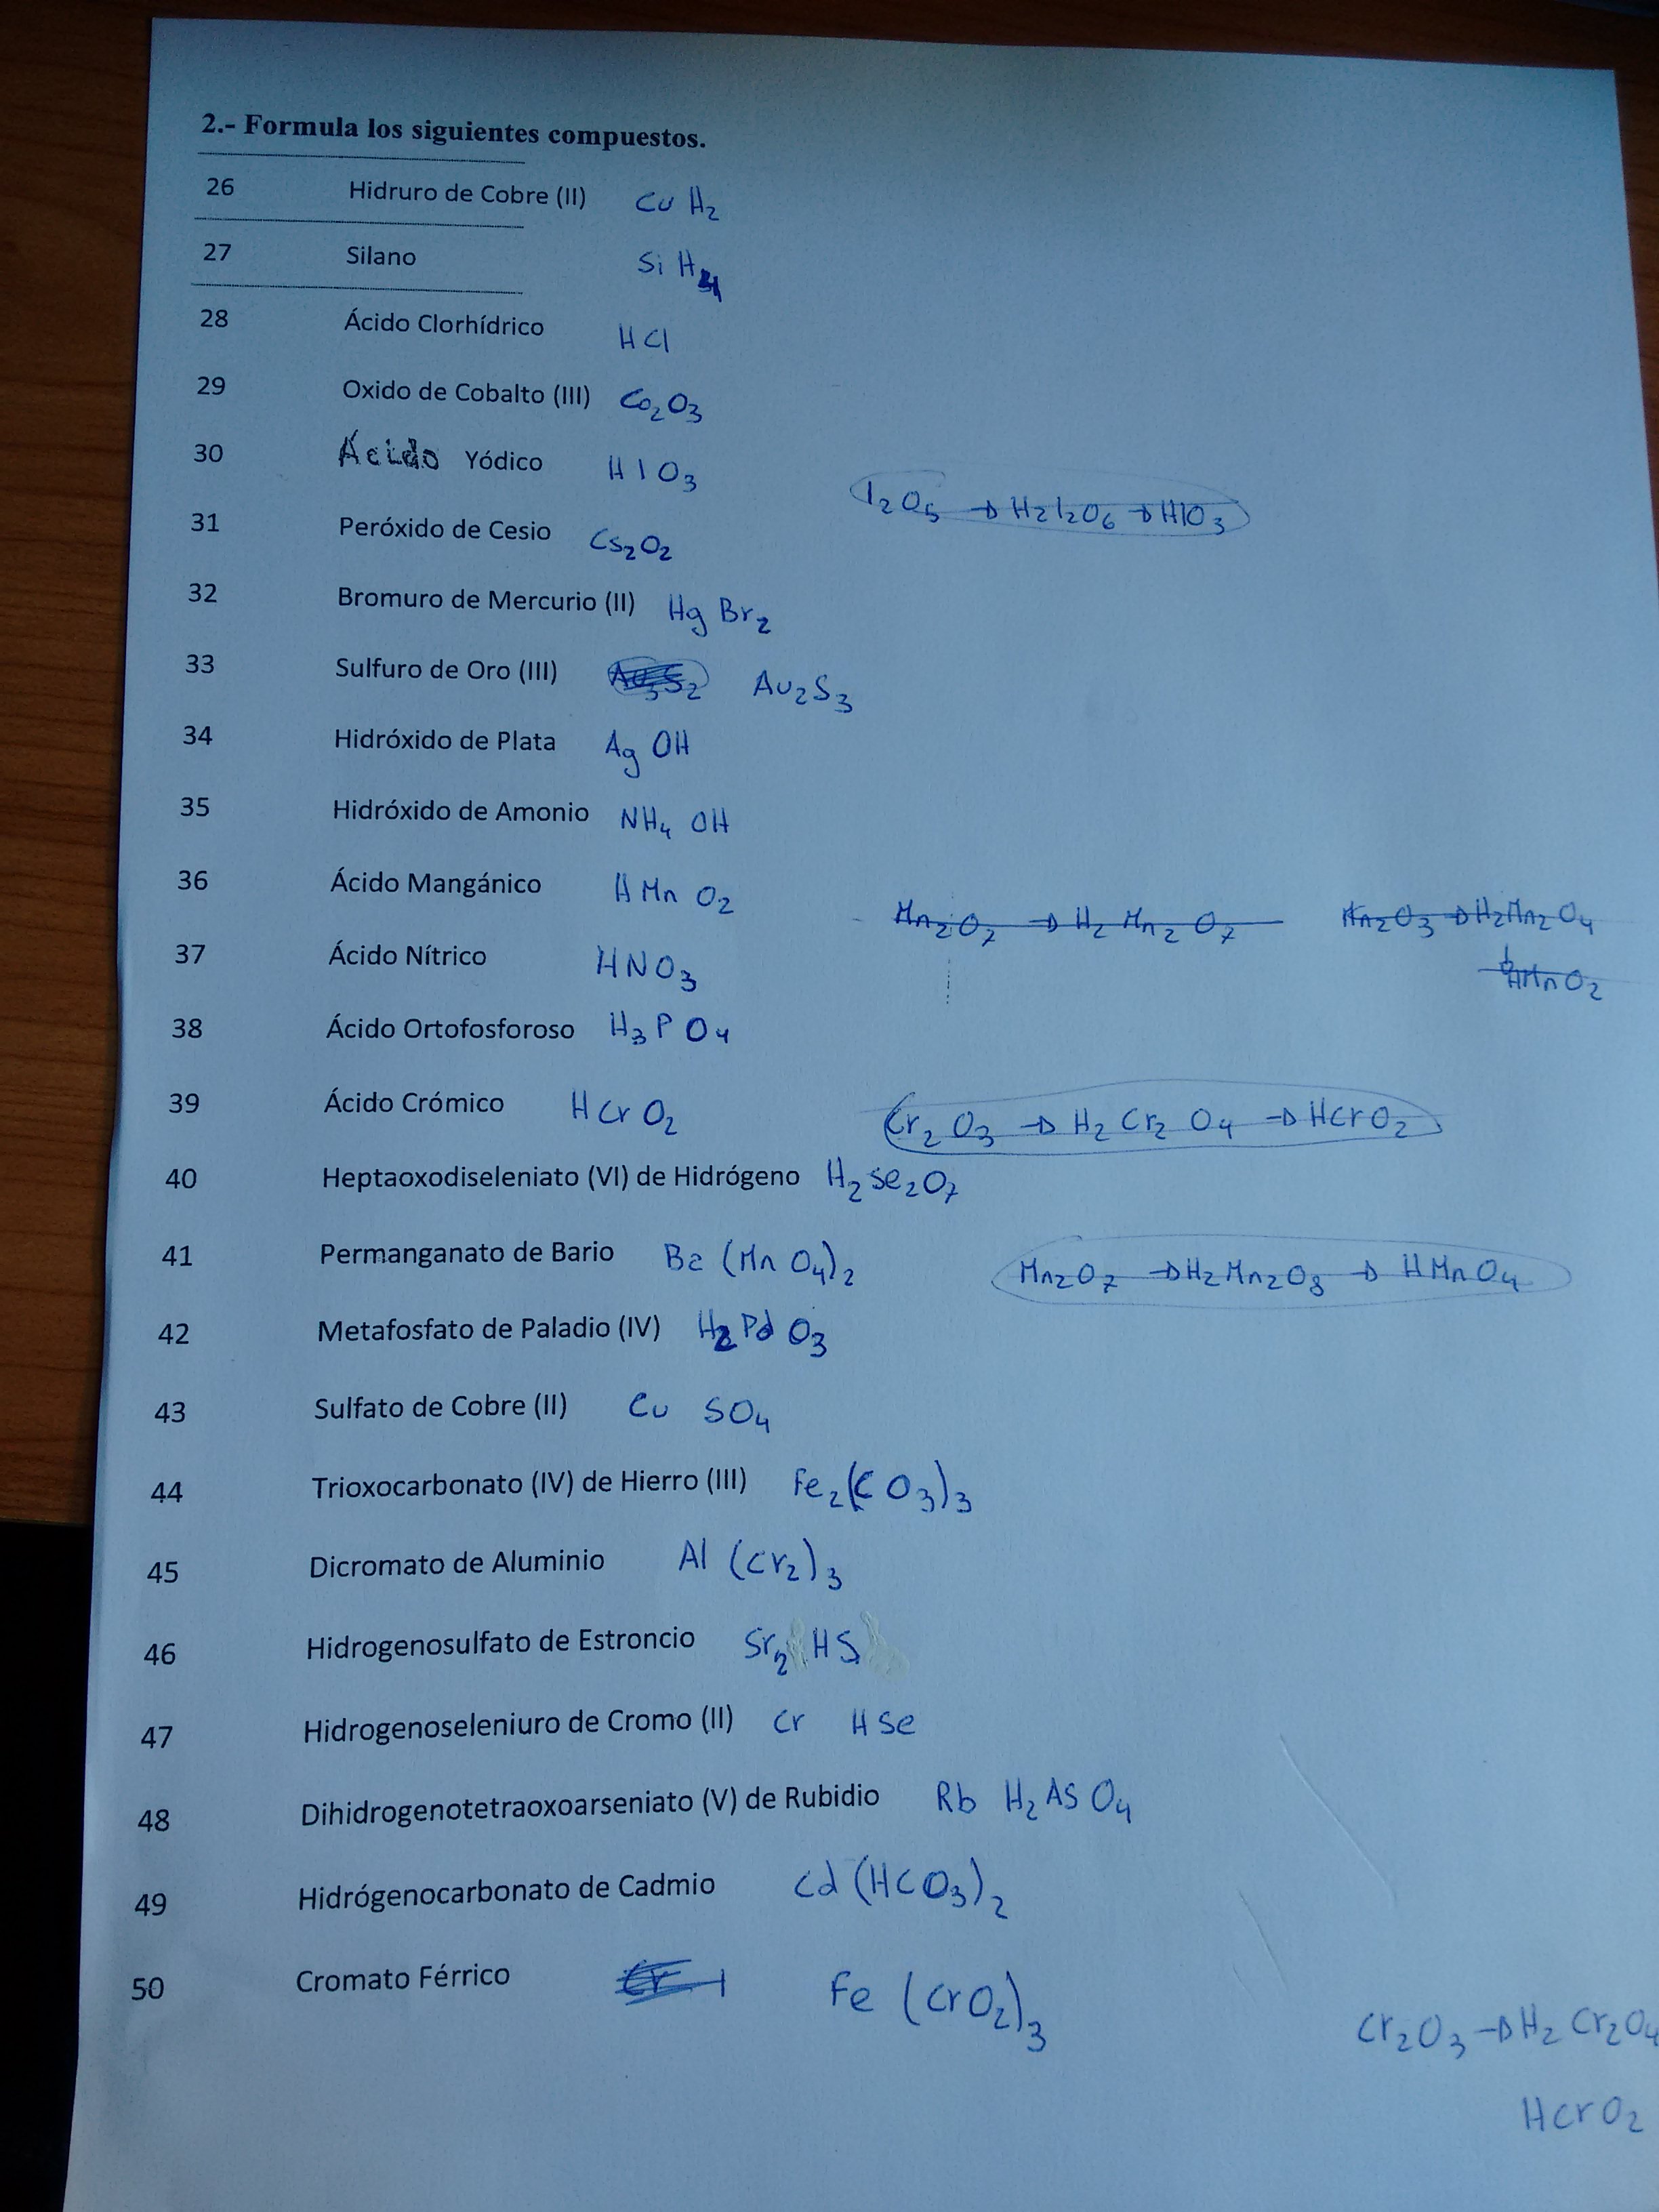 2.- Formula los siguientes compuestos.
26 Hidruro de Cobre (II) Cu H2
27 Silano Si H4
28 Ácido Clorhídrico HCl
29 Oxido de Cobalto (III) Co2O3
30 Ácido Yódico HIO3
I2O5 → H2I2O6 → HIO3
31 Peróxido de Cesio Cs2O2
32 Bromuro de Mercurio (II) Hg Br2
33 Sulfuro de Oro (III) Au3S2 Au2S3
34 Hidróxido de Plata Ag OH
35 Hidróxido de Amonio NH4 OH
36 Ácido Mangánico H Mn O2
Mn2O7 → H2 Mn2 O7 Mn2O3 → H2Mn2O4
↓ HMnO2
37 Ácido Nítrico HNO3
38 Ácido Ortofosforoso H3 P O4
39 Ácido Crómico H Cr O2 Cr2 O3 → H2 Cr2 O4 → HCrO2
40 Heptaoxodiseleniato (VI) de Hidrógeno H2 Se2O7
41 Permanganato de Bario Ba (Mn O4)2 Mn2O7 → H2Mn2O8 → HMnO4
42 Metafosfato de Paladio (IV) H2 Pd O3
43 Sulfato de Cobre (II) Cu SO4
44 Trioxocarbonato (IV) de Hierro (III) Fe2(CO3)3
45 Dicromato de Aluminio Al (Cr2)3
46 Hidrogenosulfato de Estroncio Sr2 HS
47 Hidrogenoseleniuro de Cromo (II) Cr HSe
48 Dihidrogenotetraoxoarseniato (V) de Rubidio Rb H2 AS O4
49 Hidrógenocarbonato de Cadmio Cd (HCO3)2
50 Cromato Férrico Fe (CrO2)3
Cr2O3 → H2 Cr2O4
HCrO2